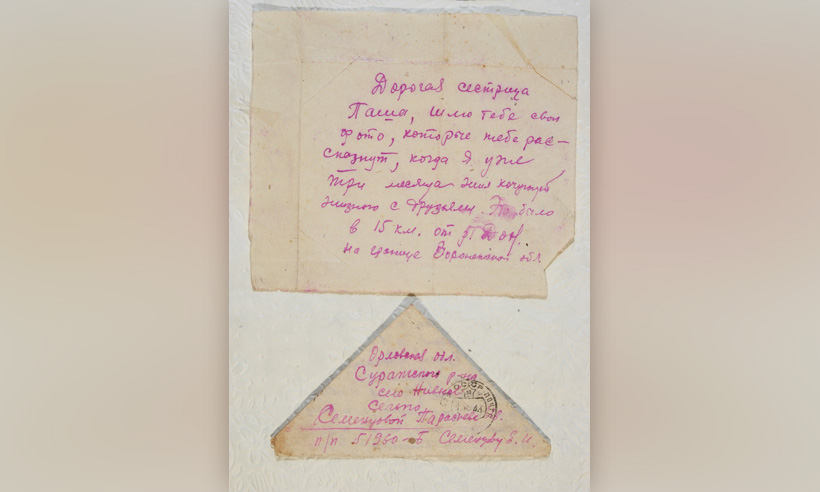 Дорогая сестрица
Паша, шлю тебе свои
фото, которые тебе рас-
скажут, когда я уже
три месяца жил кочующей
жизнью с друзьями. Это было
в 15 км. от р. Дон.
на границе Воронежской обл.
Орловская обл.
Суражского р-на
село
Сеньно
Семенцовой
п/п 51960-Б Семенцову Е. И.